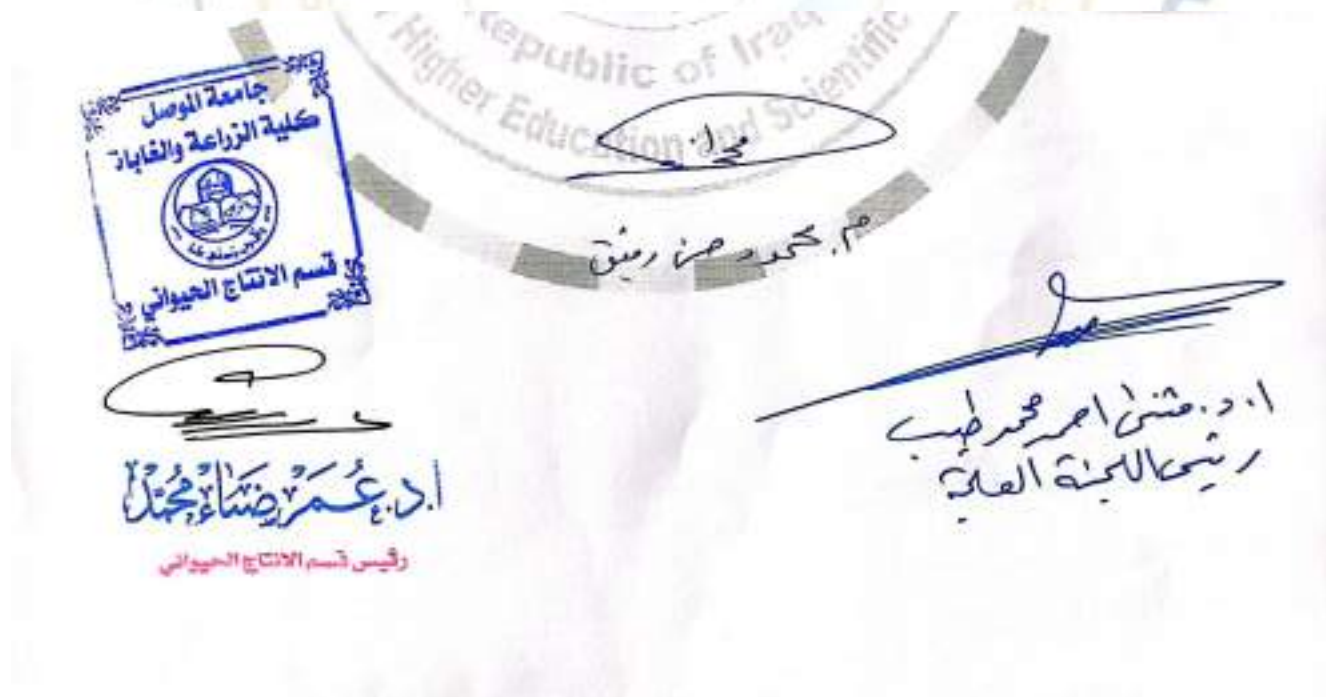 Republic of Iraq
Higher Education and Scientific
جامعة الموصل
كلية الزراعة والغابات
قسم الانتاج الحيواني
م. محمود حسن رفيق
ا.د. مثنى احمد محمد طيب
رئيس اللجنة العلمية
ا.د. عُمَر ضِيَاء مُحَمَّد
رئيس قسم الانتاج الحيواني